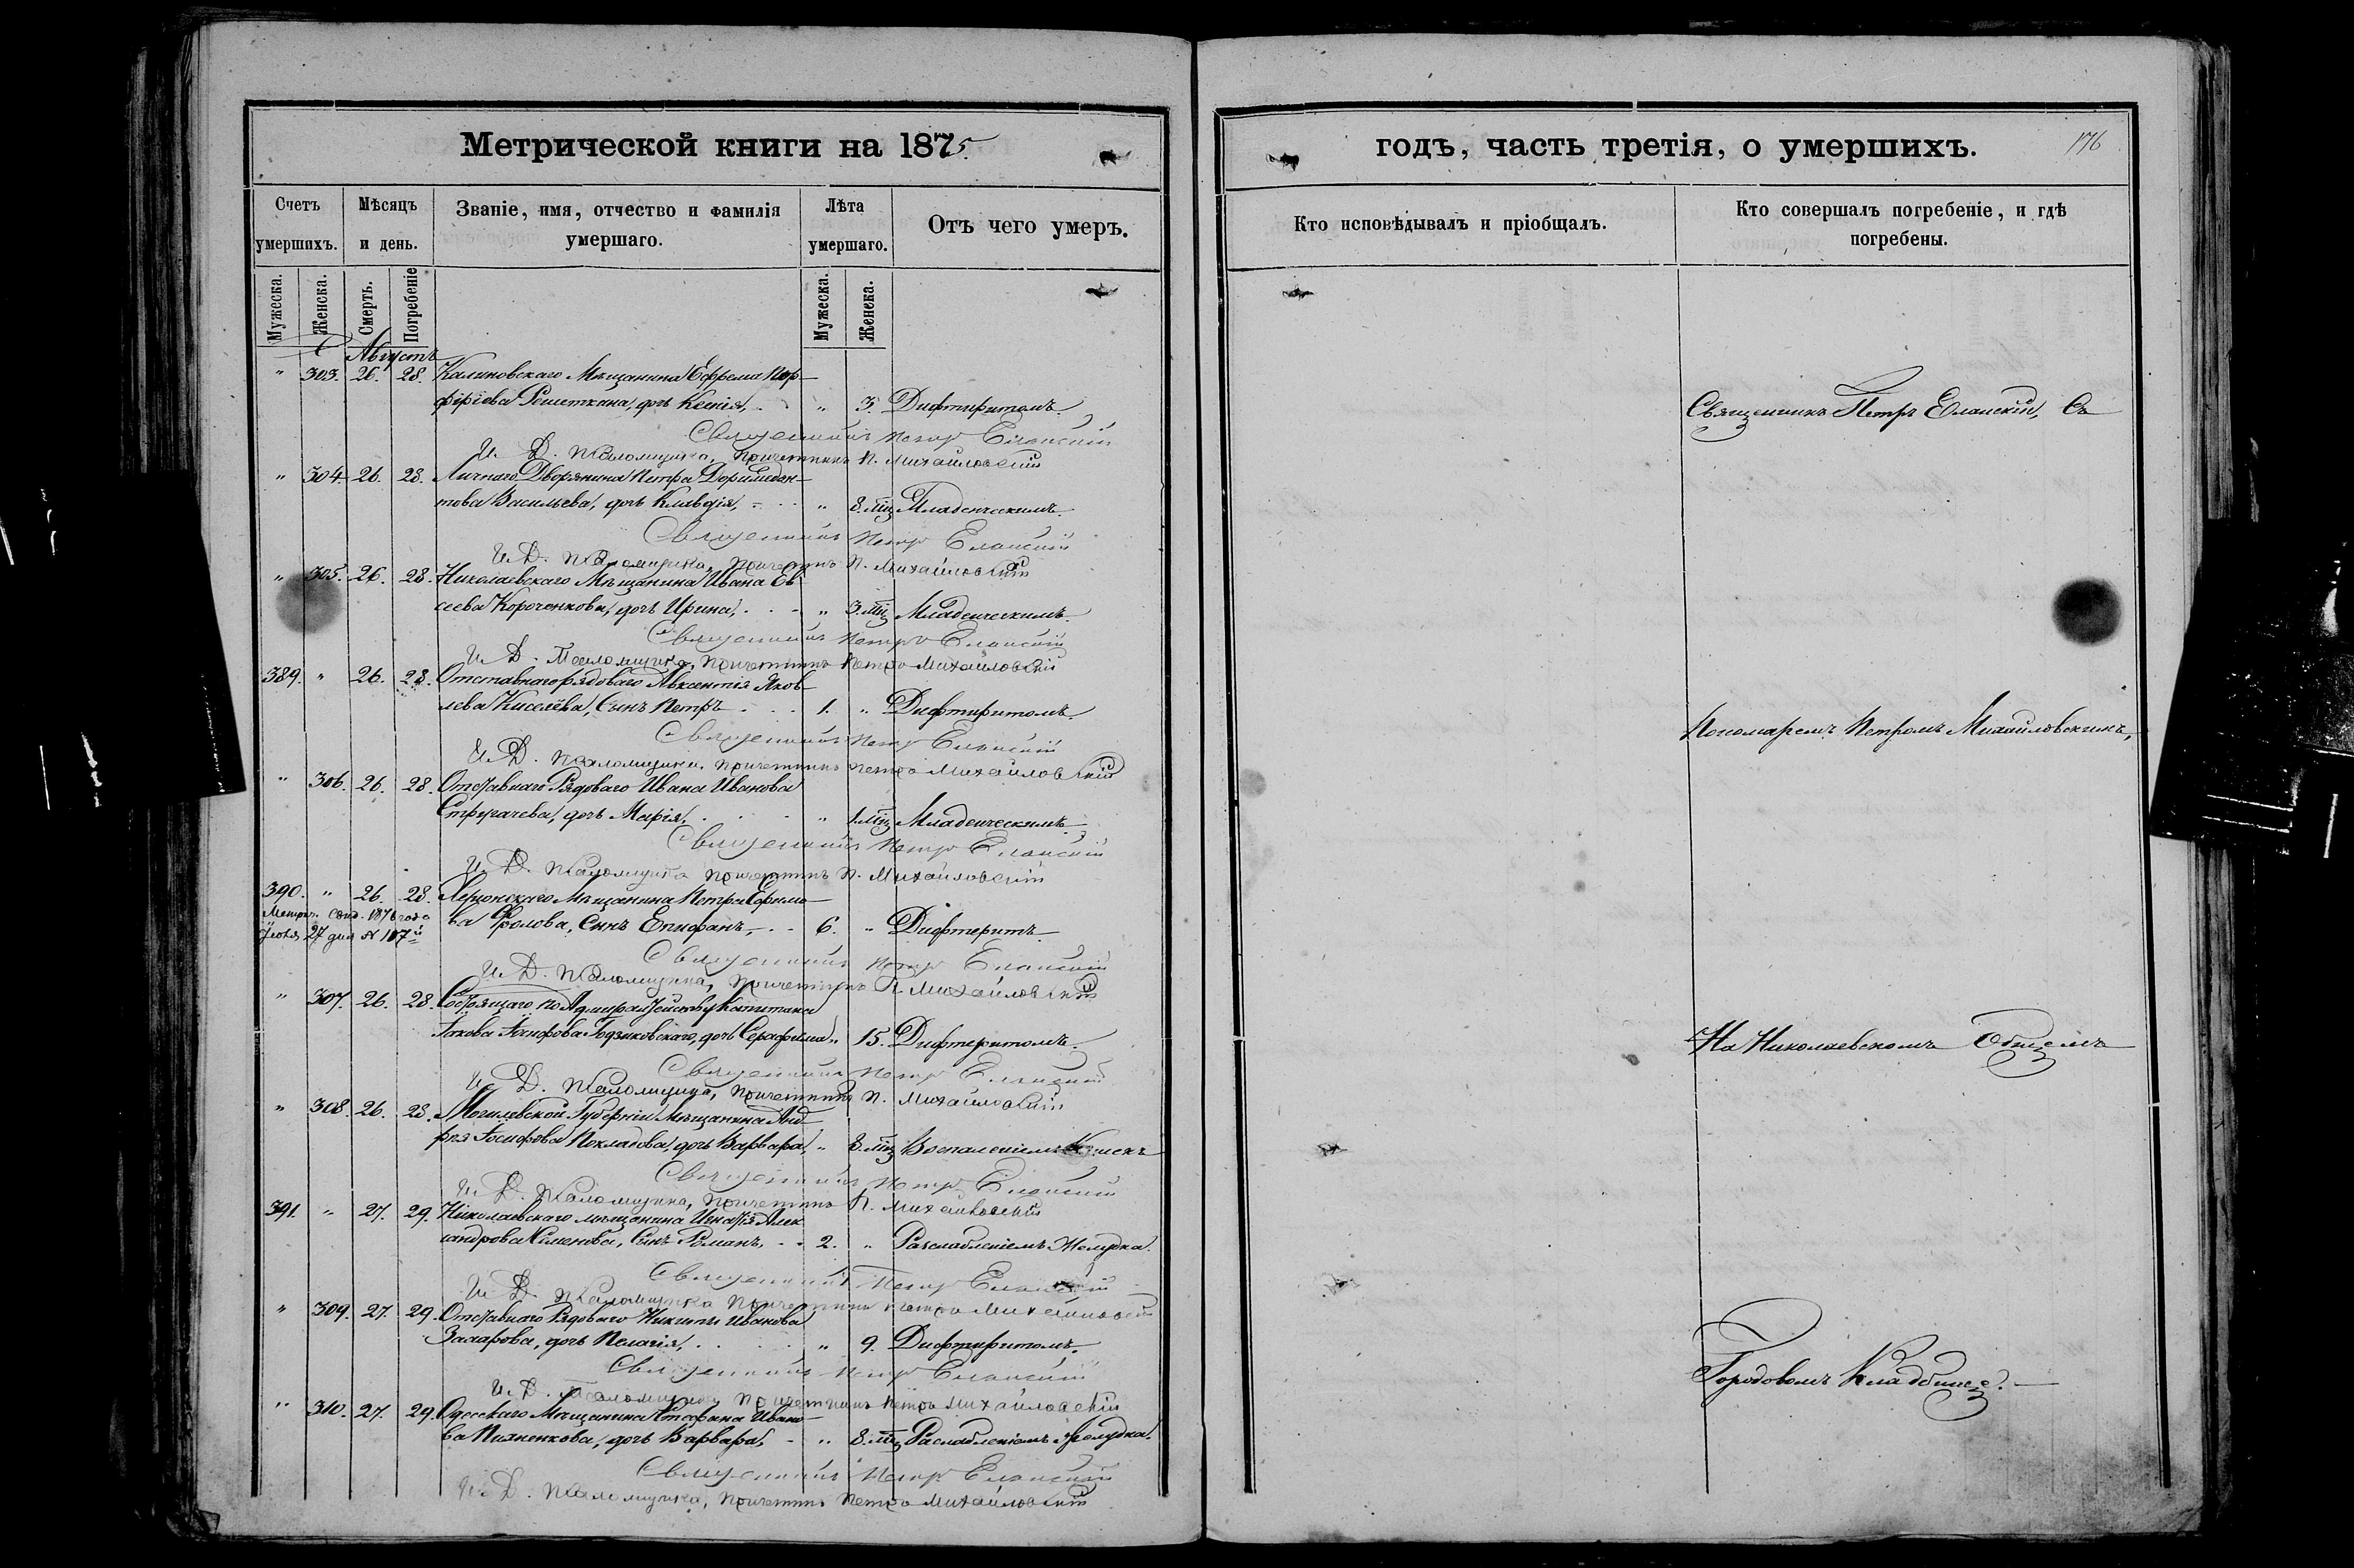 Метрической книги на 1875.
Счетъ умершихъ.
Мѣсяцъ и день.
Званіе, имя, отчество и фамилія умершаго.
Лѣта умершаго.
Отъ чего умеръ.
Мужеска.
Женска.
Смерть.
Погребеніе
Мужеска.
Женска.
Августъ
" 303. 26. 28. Калиновскаго Мѣщанина Ефрема Пор-
фиріева Решеткина, дочь Ксенія, " 3. Дифтиритомъ.
Священникъ Петръ Еланскій
И. Д. Псаломщика, Причетникъ П. Михайловскій
" 304. 26. 28. Личнаго Дворянина Петра Доримедон-
това Васильева, дочь Клавдія, " 8. мц Младенческимъ.
Священникъ Петръ Еланскій
И. Д. Псаломщика, Причетникъ П. Михайловскій
" 305. 26. 28. Николаевскаго Мѣщанина Ивана Ев
сеева Короченкова, дочь Ирина, " 3. мц Младенческимъ.
Священникъ Петръ Еланскій
И. Д. Псаломщика, Причетникъ Петръ Михайловскій
389. " 26. 28. Отставнаго рядоваго Авксентія Яков-
лева Киселёва, Сынъ Петръ 1. " Дифтиритомъ.
Священникъ Петръ Еланскій
И. Д. Псаломщика, Причетникъ Петръ Михайловскій
" 306. 26. 28. Отставнаго Рядоваго Ивана Иванова
Стругачева, дочь Марія, " 1. мц Младенческимъ.
Священникъ Петръ Еланскій
И. Д. Псаломщика Причетникъ П. Михайловскій
390. " 26. 28. Херсонскаго Мѣщанина Петра Ефимо-
ва Фролова, Сынъ Епифанъ, 6. " Дифтеритъ.
Метрич. Свид. 1876 года
27 дня № 107
Священникъ Петръ Еланскій
И. Д. Псаломщика, Причетникъ П. Михайловскій
" 307. 26. 28. Состоящаго по Адмиралтейству Капитана
Якова Іосифова Годзиковскаго, дочь Серафима " 15. Дифтеритомъ.
Священникъ Петръ Еланскій
И. Д. Псаломщика, Причетникъ П. Михайловскій
" 308. 26. 28. Могилевской Губерніи Мѣщанина Анд
рея Іосифова Покладова, дочь Варвара, " 8. мц Воспаленіемъ Кишекъ
Священникъ Петръ Еланскій
И. Д. Псаломщика, Причетникъ П. Михайловскій
391. " 27. 29. Николаевскаго мѣщанина Игнатія Алек
сандрова Семенова, Сынъ Романъ, 2. " Разслабленіемъ Желудка.
Священникъ Петръ Еланскій
И. Д. Псаломщика Причетникъ Петръ Михайловскій
" 309. 27. 29. Отставнаго Рядоваго Никиты Иванова
Захарова, дочь Пелагія, " 9. Дифтиритомъ.
Священникъ Петръ Еланскій
И. Д. Псаломщика Причетникъ Петръ Михайловскій
" 310. 27. 29. Одесскаго Мѣщанина Стефана Ивано-
ва Пихненкова, дочь Варвара, " 8. мц Раслабленіемъ Желудка.
Священникъ Петръ Еланскій
И. Д. Псаломщика, Причетникъ Петръ Михайловскій
годъ, часть третія, о умершихъ.
176
Кто исповѣдывалъ и пріобщалъ.
Кто совершалъ погребеніе, и гдѣ погребены.
Священникъ Петръ Еланскій, Съ
Пономаремъ Петромъ Михайловскимъ,
На Николаевскомъ Общемъ
Городовомъ Кладбищѣ.